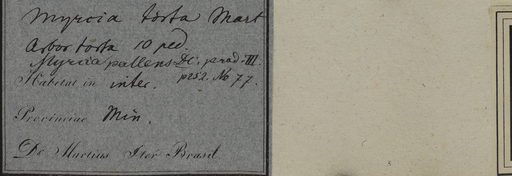 Myrcia torta Mart
Arbor torta 10 ped.
Myrcia pallens DC. prod. III.
p252. No 77.
Habitat in inter.
Provinciae Min.
Dr Martius Iter Brasil